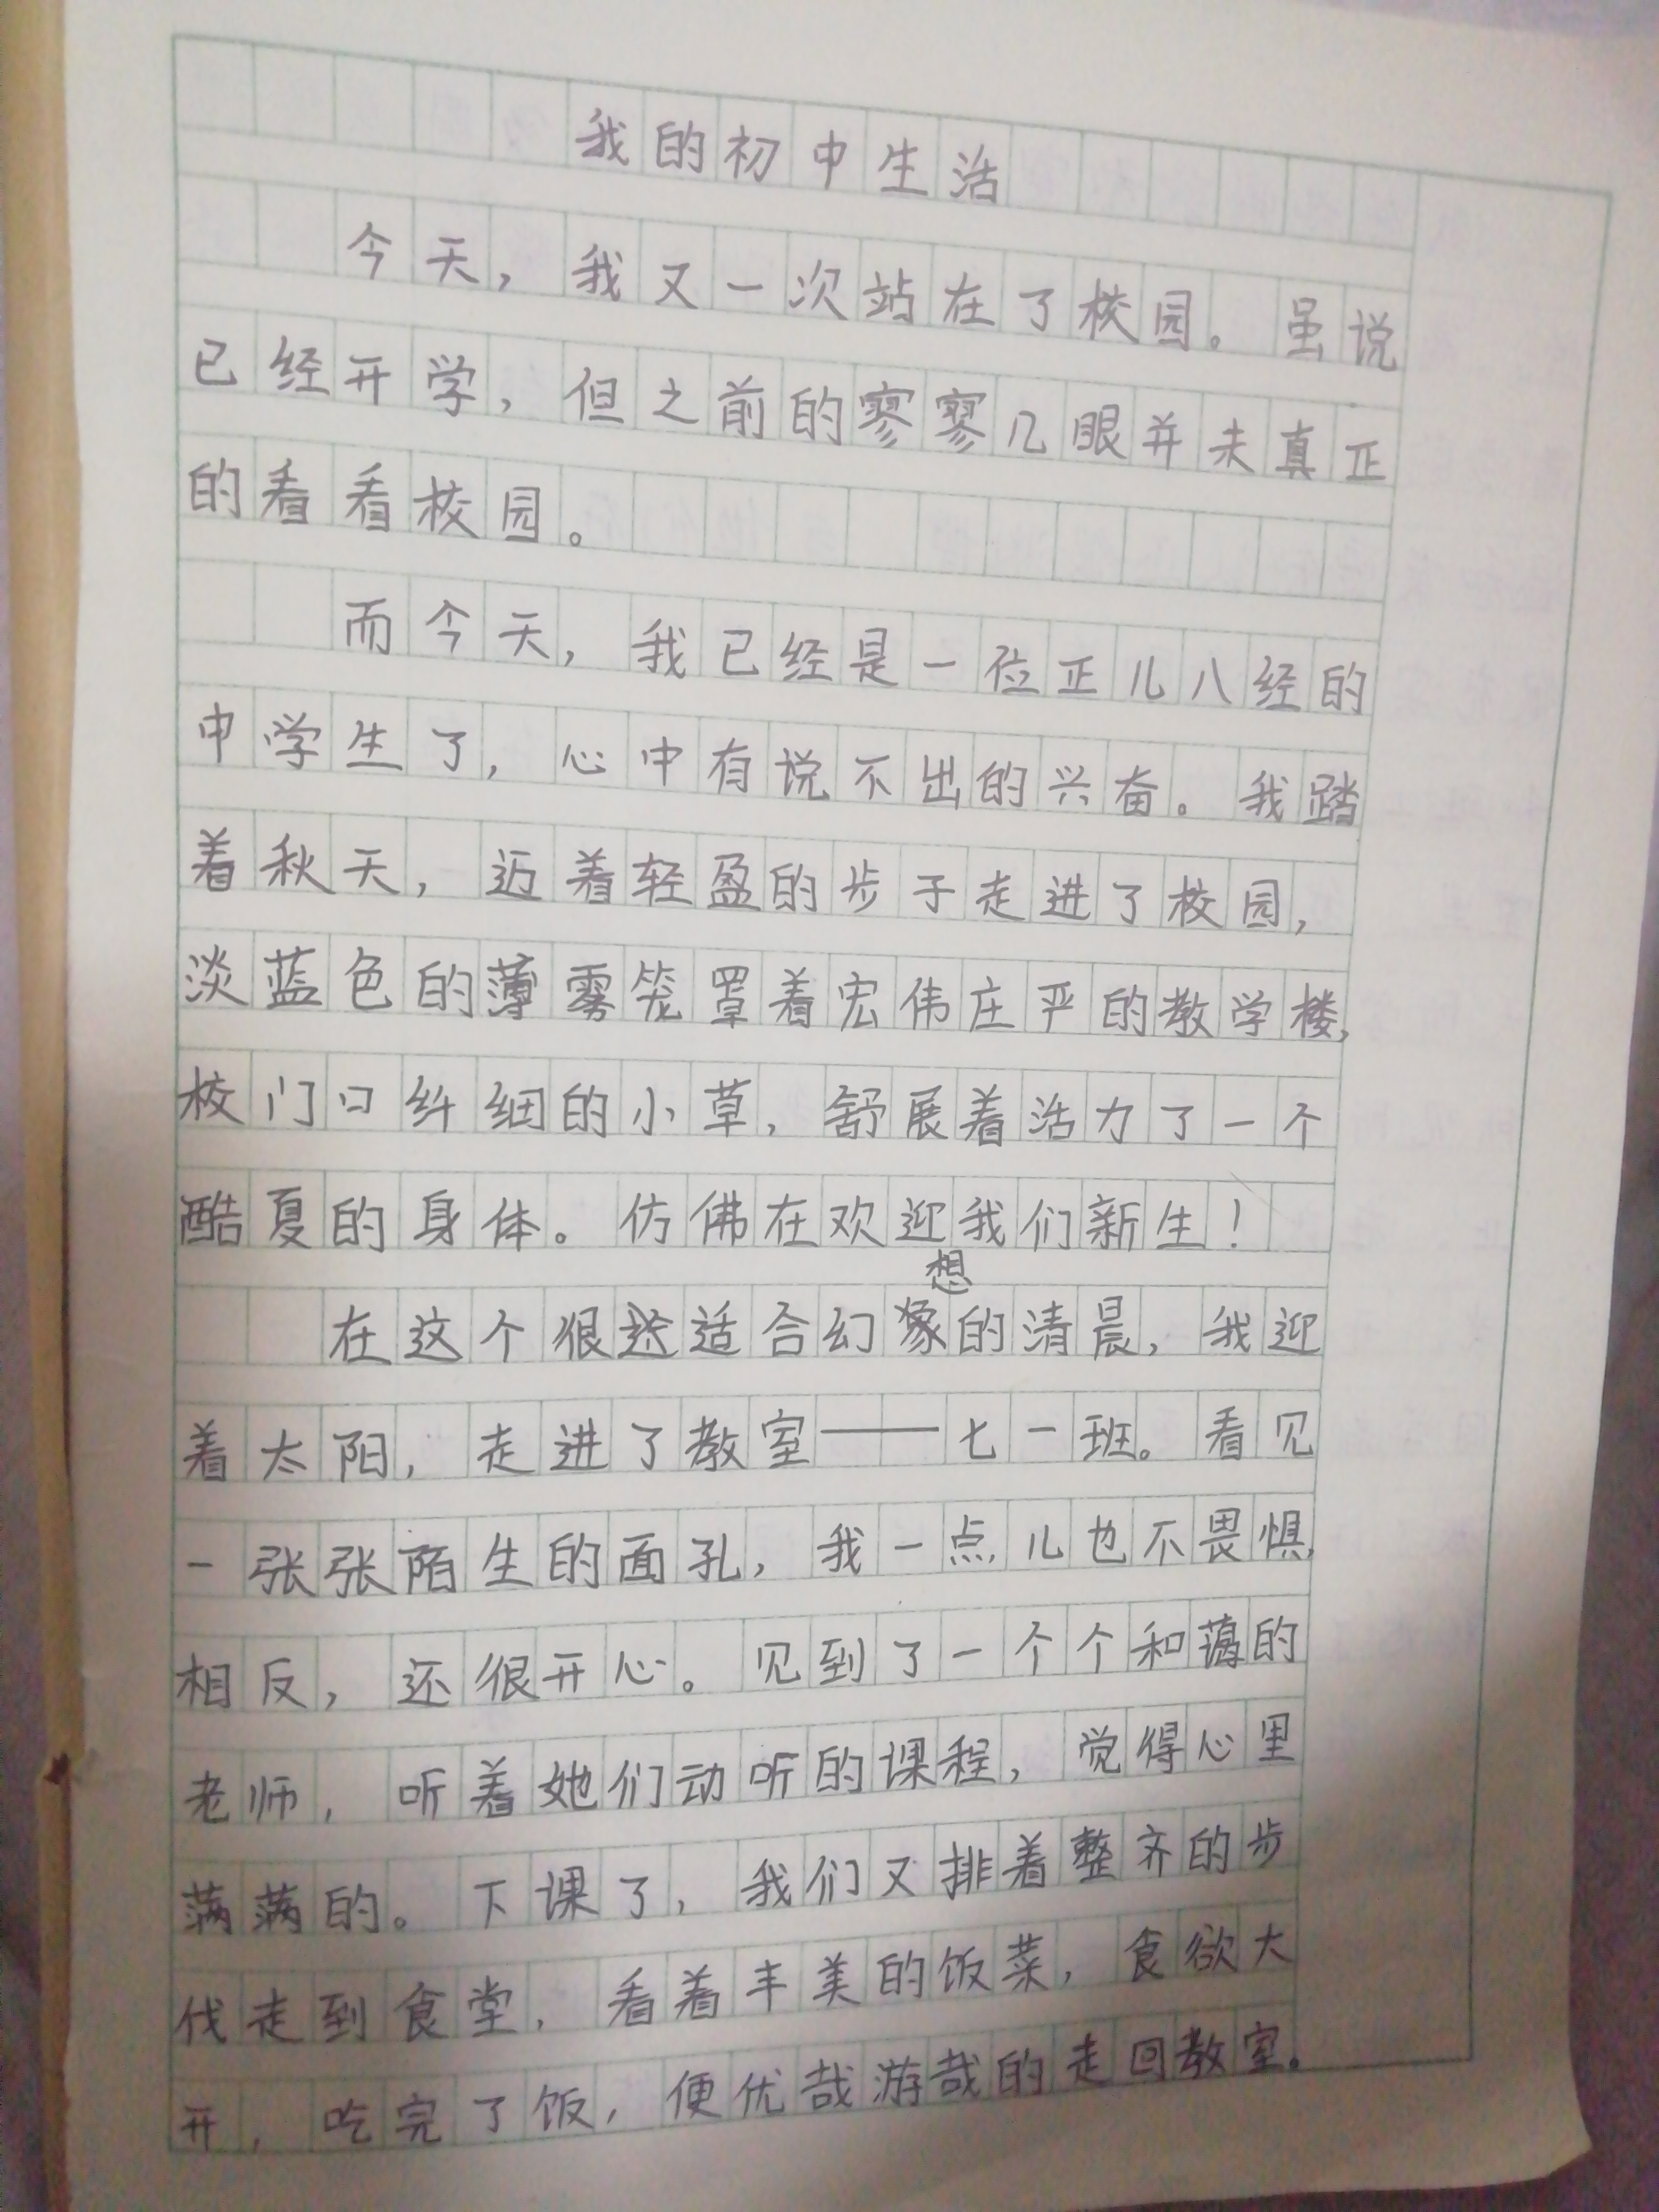 我的初中生活
今天，我又一次站在了校园。虽说
已经开学，但之前的寥寥几眼并未真正
的看看校园。
而今天，我已经是一位正儿八经的
中学生了，心中有说不出的兴奋。我踏
着秋天，迈着轻盈的步子走进了校园，
淡蓝色的薄雾笼罩着宏伟庄严的教学楼，
校门口纤细的小草，舒展着活力了一个
酷夏的身体。仿佛在欢迎我们新生！
想
在这个很适合幻的清晨，我迎
着太阳，走进了教室——七一班。看见
一张张陌生的面孔，我一点儿也不畏惧，
相反，还很开心。见到了一个个和蔼的
老师，听着她们动听的课程，觉得心里
满满的。下课了，我们又排着整齐的步
伐走到食堂，看着丰美的饭菜，食欲大
开，吃完了饭，便优哉游哉的走回教室。